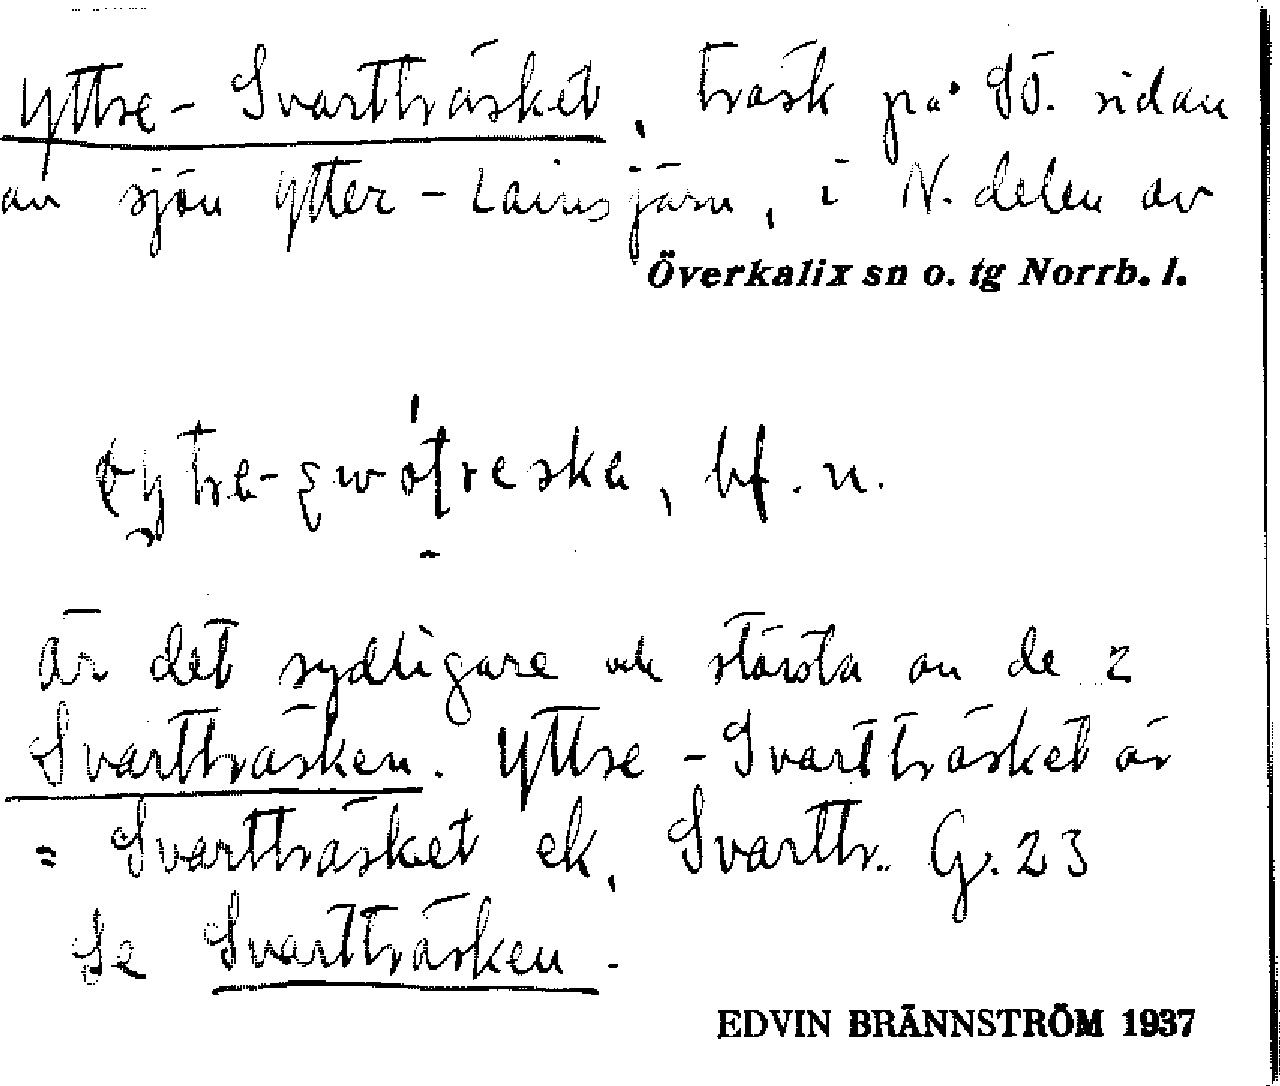 Yttre-Svartträsket, träsk på SÖ. sidan
av sjön Ytter-Lainsjärv, i N. delen av
Överkalix sn o. tg Norrb. l.
bf. n.
är det sydligare och största av de 2
Svartträsken. Yttre-Svartträsket är
= Svartträsket ek, Svarttr. G. 23
Se Svartträsken.
EDVIN BRÄNNSTRÖM 1937